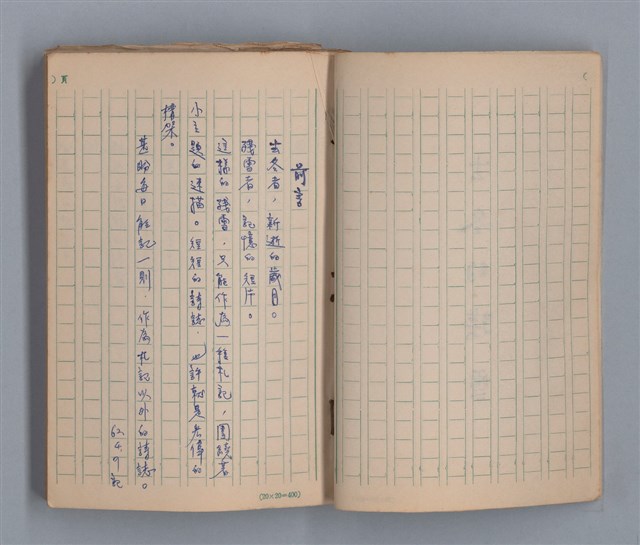 前言
去冬者，新逝的歲月。
殘雪者，記憶的短片。
這樣的殘雪，只能作為一種札記，圍繞著
小主題的速描。短短的詩誌，也許就是老偉的
構架。
甚盼每日能記一則，作為札記以外的詩誌。
62.4.9記
頁
(20×20=400)